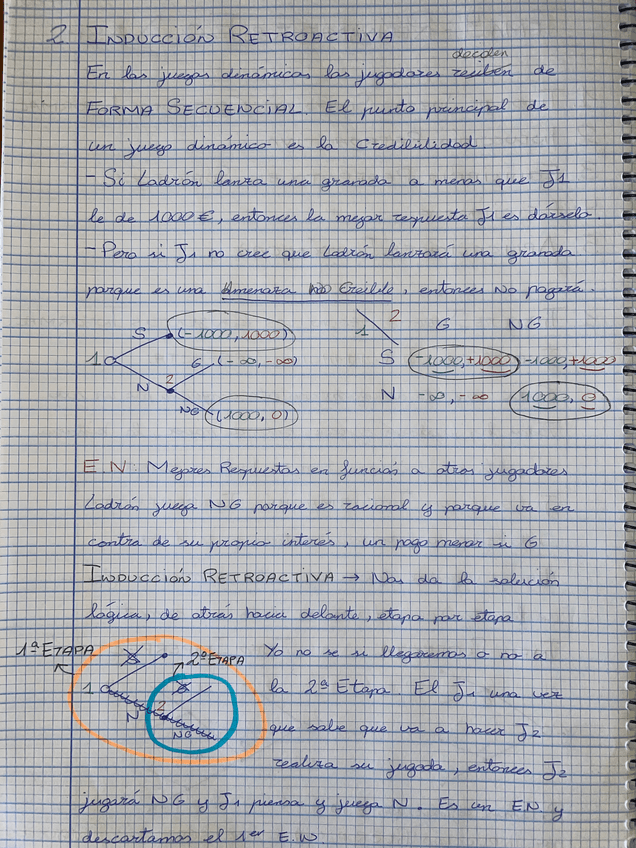 2 INDUCCIÓN RETROACTIVA
deciden
En los juegos dinámicos los jugadores reciben de
FORMA SECUENCIAL. El punto principal de
un juego dinámico es la Credibilidad.
- Si Ladrón lanza una granada a menos que J1
le de 1000 €, entonces la mejor respuesta J1 es dársela.
- Pero si J1 no cree que Ladrón lanzará una granada
porque es una Amenaza NO Creíble, entonces No pagará.
S (-1000, 1000) 1 2 G NG
1 G (-∞, -∞) S (-1000, +1000) -1000, +1000
N 2 N -∞, -∞ (1000, 0)
NG (1000, 0)
E.N: Mejores Respuestas en función a otros jugadores
Ladrón juega NG porque es racional y porque va en
contra de su propio interés, un pago menor si G
INDUCCIÓN RETROACTIVA → Nos da la solución
lógica, de atrás hacia delante, etapa por etapa
1ª ETAPA S 2ª ETAPA Yo no se si llegaremos o no a
1 G la 2ª Etapa. El J1 una vez
N 2 NG que sabe que va a hacer J2
realiza su jugada, entonces J2
jugará NG y J1 piensa y juega N. Es un EN. y
descartamos el 1er E.N.